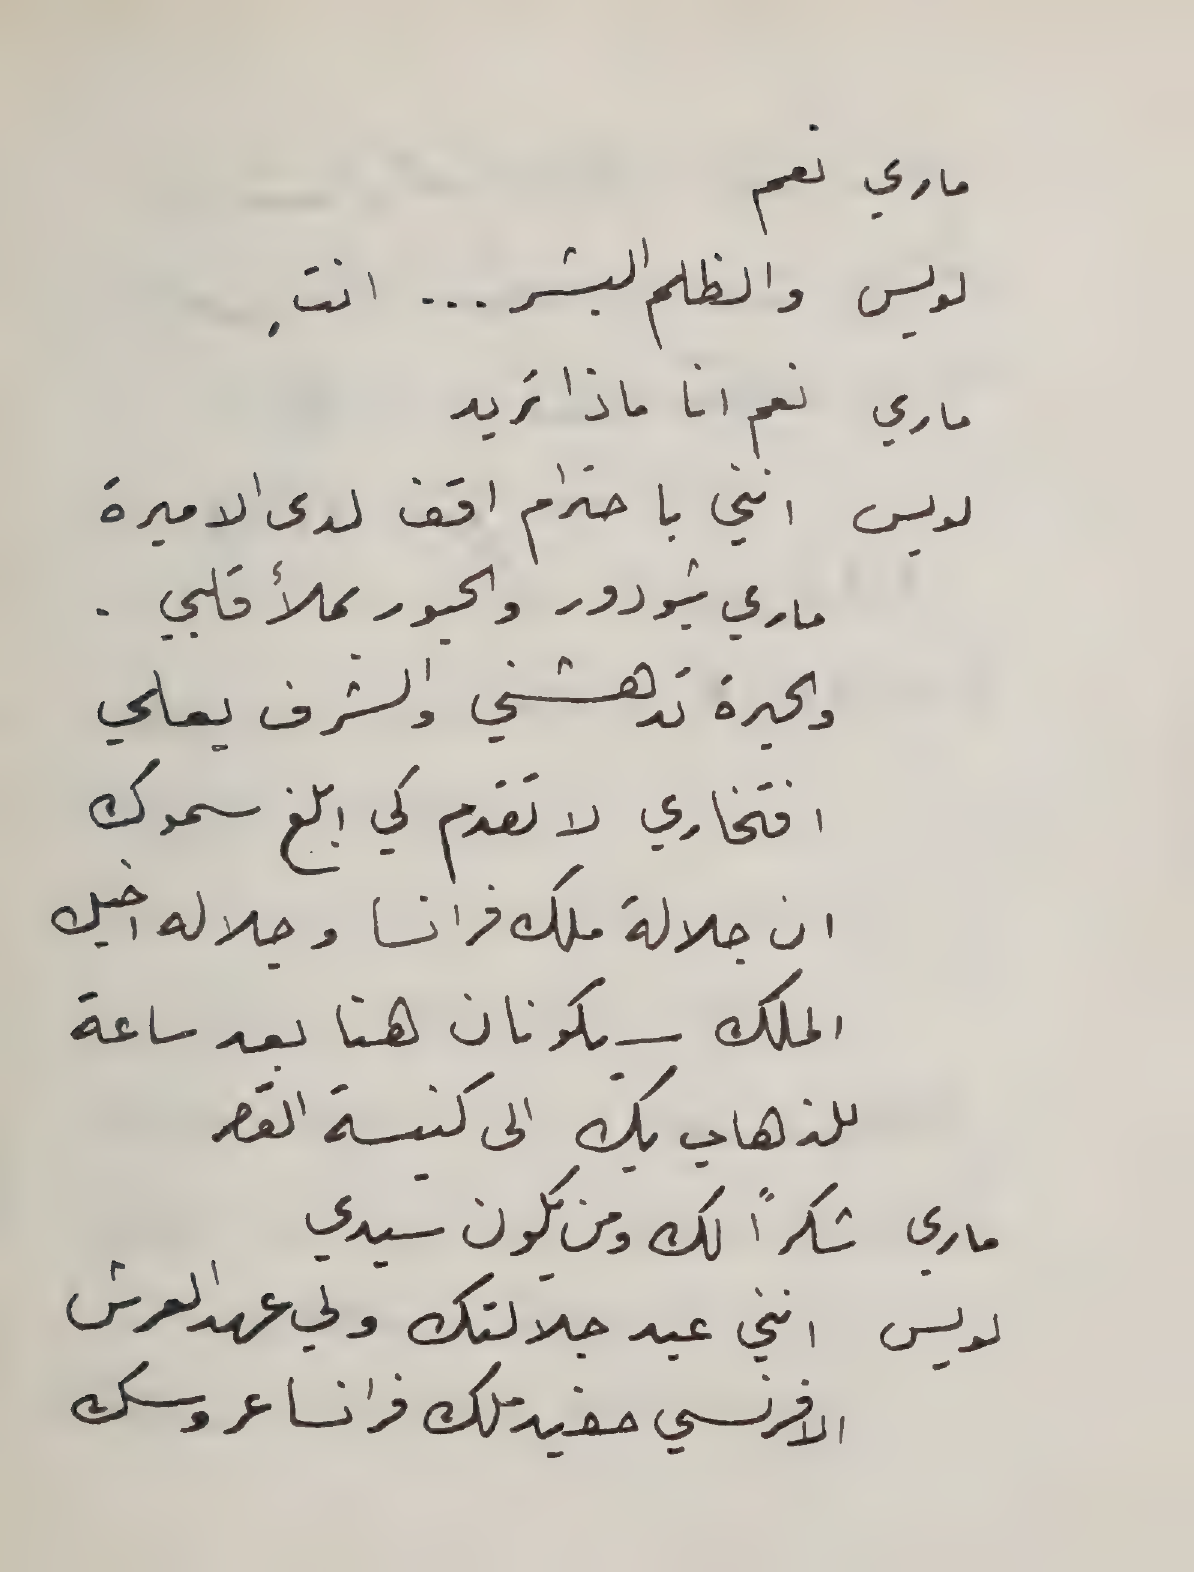 ماري نعم
لويس والظلم البشر ... انتِ
ماري نعم انا ماذا تريد
لويس انني باحترام اقف لدى الاميرة
ماري تيودور والحبور يملأ قلبي .
والحيرة تدهشني والشرف يعلي
افتخاري لاتقدم كي ابلغ سموك
ان جلالة ملك فرانسا وجلاله اخيك
الملك سيكونان هنا بعد ساعة
للذهاب بك الى كنيسة القصر
ماري شكراً لك ومن يكون سيدي
لويس انني عبد جلالتك ولي عهد العرش
الافرنسي حفيد ملك فرانسا عروسك